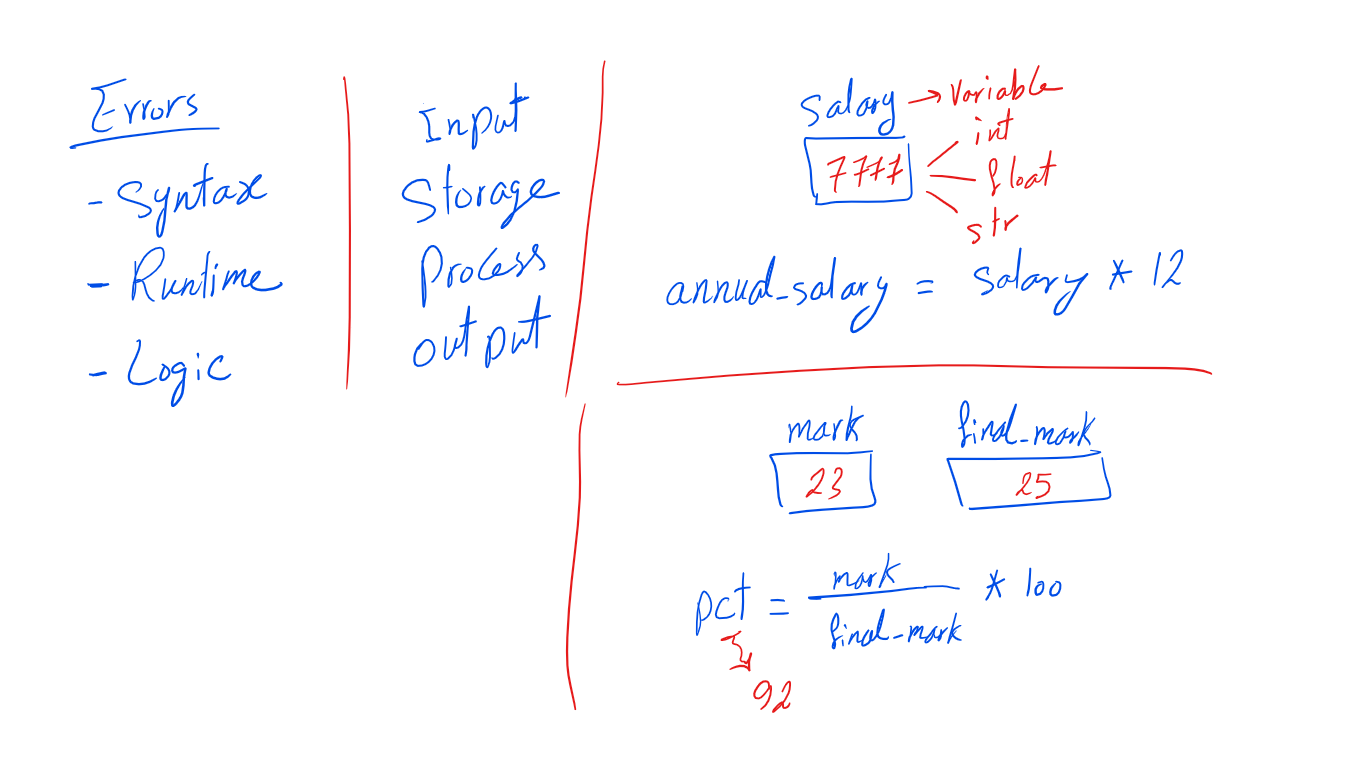 Errors
- Syntax
- Runtime
- Logic
Input
Storage
Process
output
Salary → Variable
7777
int
float
str
annual_salary = salary * 12
mark
23
final_mark
25
pct = mark / final_mark * 100
92